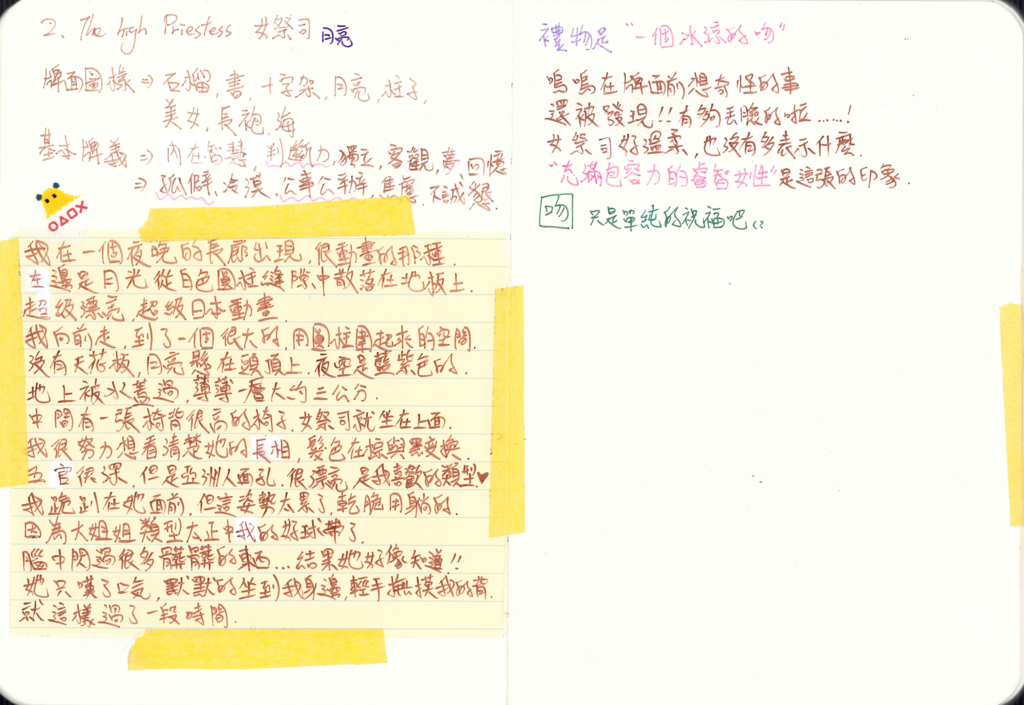 2. The high Priestess 女祭司 月亮
牌面圖樣 ⇒ 石榴,書,十字架,月亮,柱子,
美女,長袍,海
基本牌義 ⇒ 內在智慧,判斷力,獨立,客觀,夢、回憶
⇒ 孤僻、冷漠、公事公辦,焦慮、不誠懇.
我在一個夜晚的長廊出現,很動畫的那種.
左邊是月光從白色圓柱縫隙中散落在地板上.
超級漂亮,超級日本動畫.
我向前走,到了一個很大的,用圓柱圍起來的空間.
沒有天花板,月亮懸在頭頂上.夜空是藍紫色的.
地上被水蓋過,薄薄一層大約三公分.
中間有一張椅背很高的椅子,女祭司就坐在上面.
我很努力想看清楚她的長相,髮色在棕與黑變換.
五官很深,但是亞洲人面孔.很漂亮,是我喜歡的類型♥
我跪趴在她面前,但這姿勢太累了,乾脆用躺的.
因為大姐姐類型太正中我的好球帶了.
腦中閃過很多髒髒的東西...結果她好像知道!!
她只嘆了口氣,默默的坐到我身邊,輕手撫摸我的背.
就這樣過了一段時間.
禮物是"一個冰涼的吻"
嗚嗚在牌面前想奇怪的事
還被發現!!有夠丟臉的啦......!
女祭司好溫柔,也沒有多表示什麼.
"充滿包容力的睿智女性"是這張的印象.
吻 只是單純的祝福吧